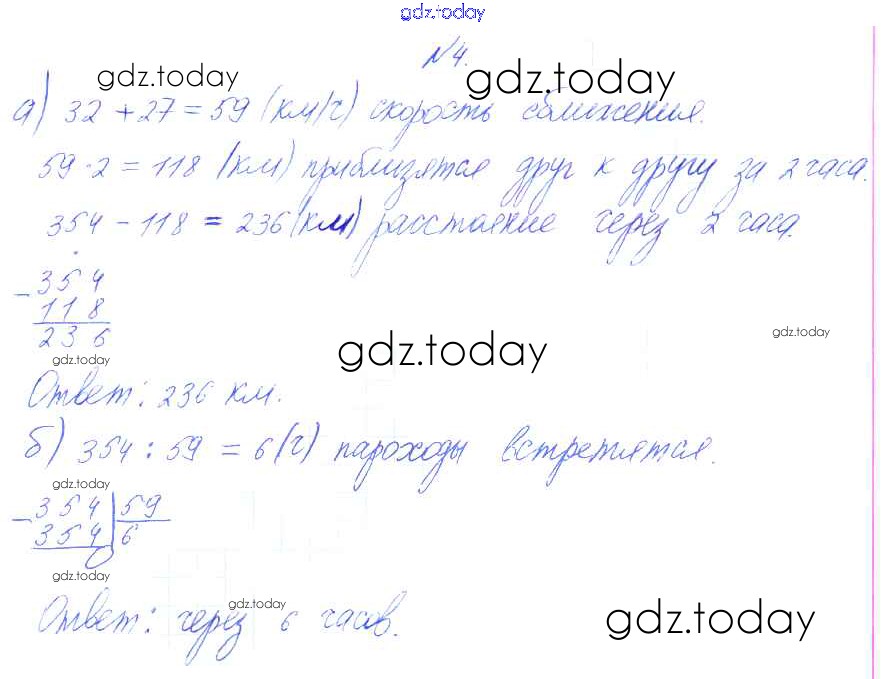 gdz.today
№4.
gdz.today gdz.today
а) 32 + 27 = 59 (км/ч) скорость сближения.
59 · 2 = 118 (км) приблизятся друг к другу за 2 часа.
354 - 118 = 236 (км) расстояние через 2 часа.
- 354
118
236
gdz.today
gdz.today
gdz.today
Ответ: 236 км.
б) 354 : 59 = 6 (ч) пароходы встретятся.
gdz.today
- 354 | 59
354 | 6
0
gdz.today
gdz.today
gdz.today
Ответ: через 6 часов.